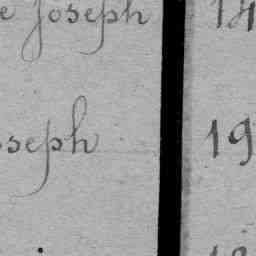 e Joseph 14
oseph 19